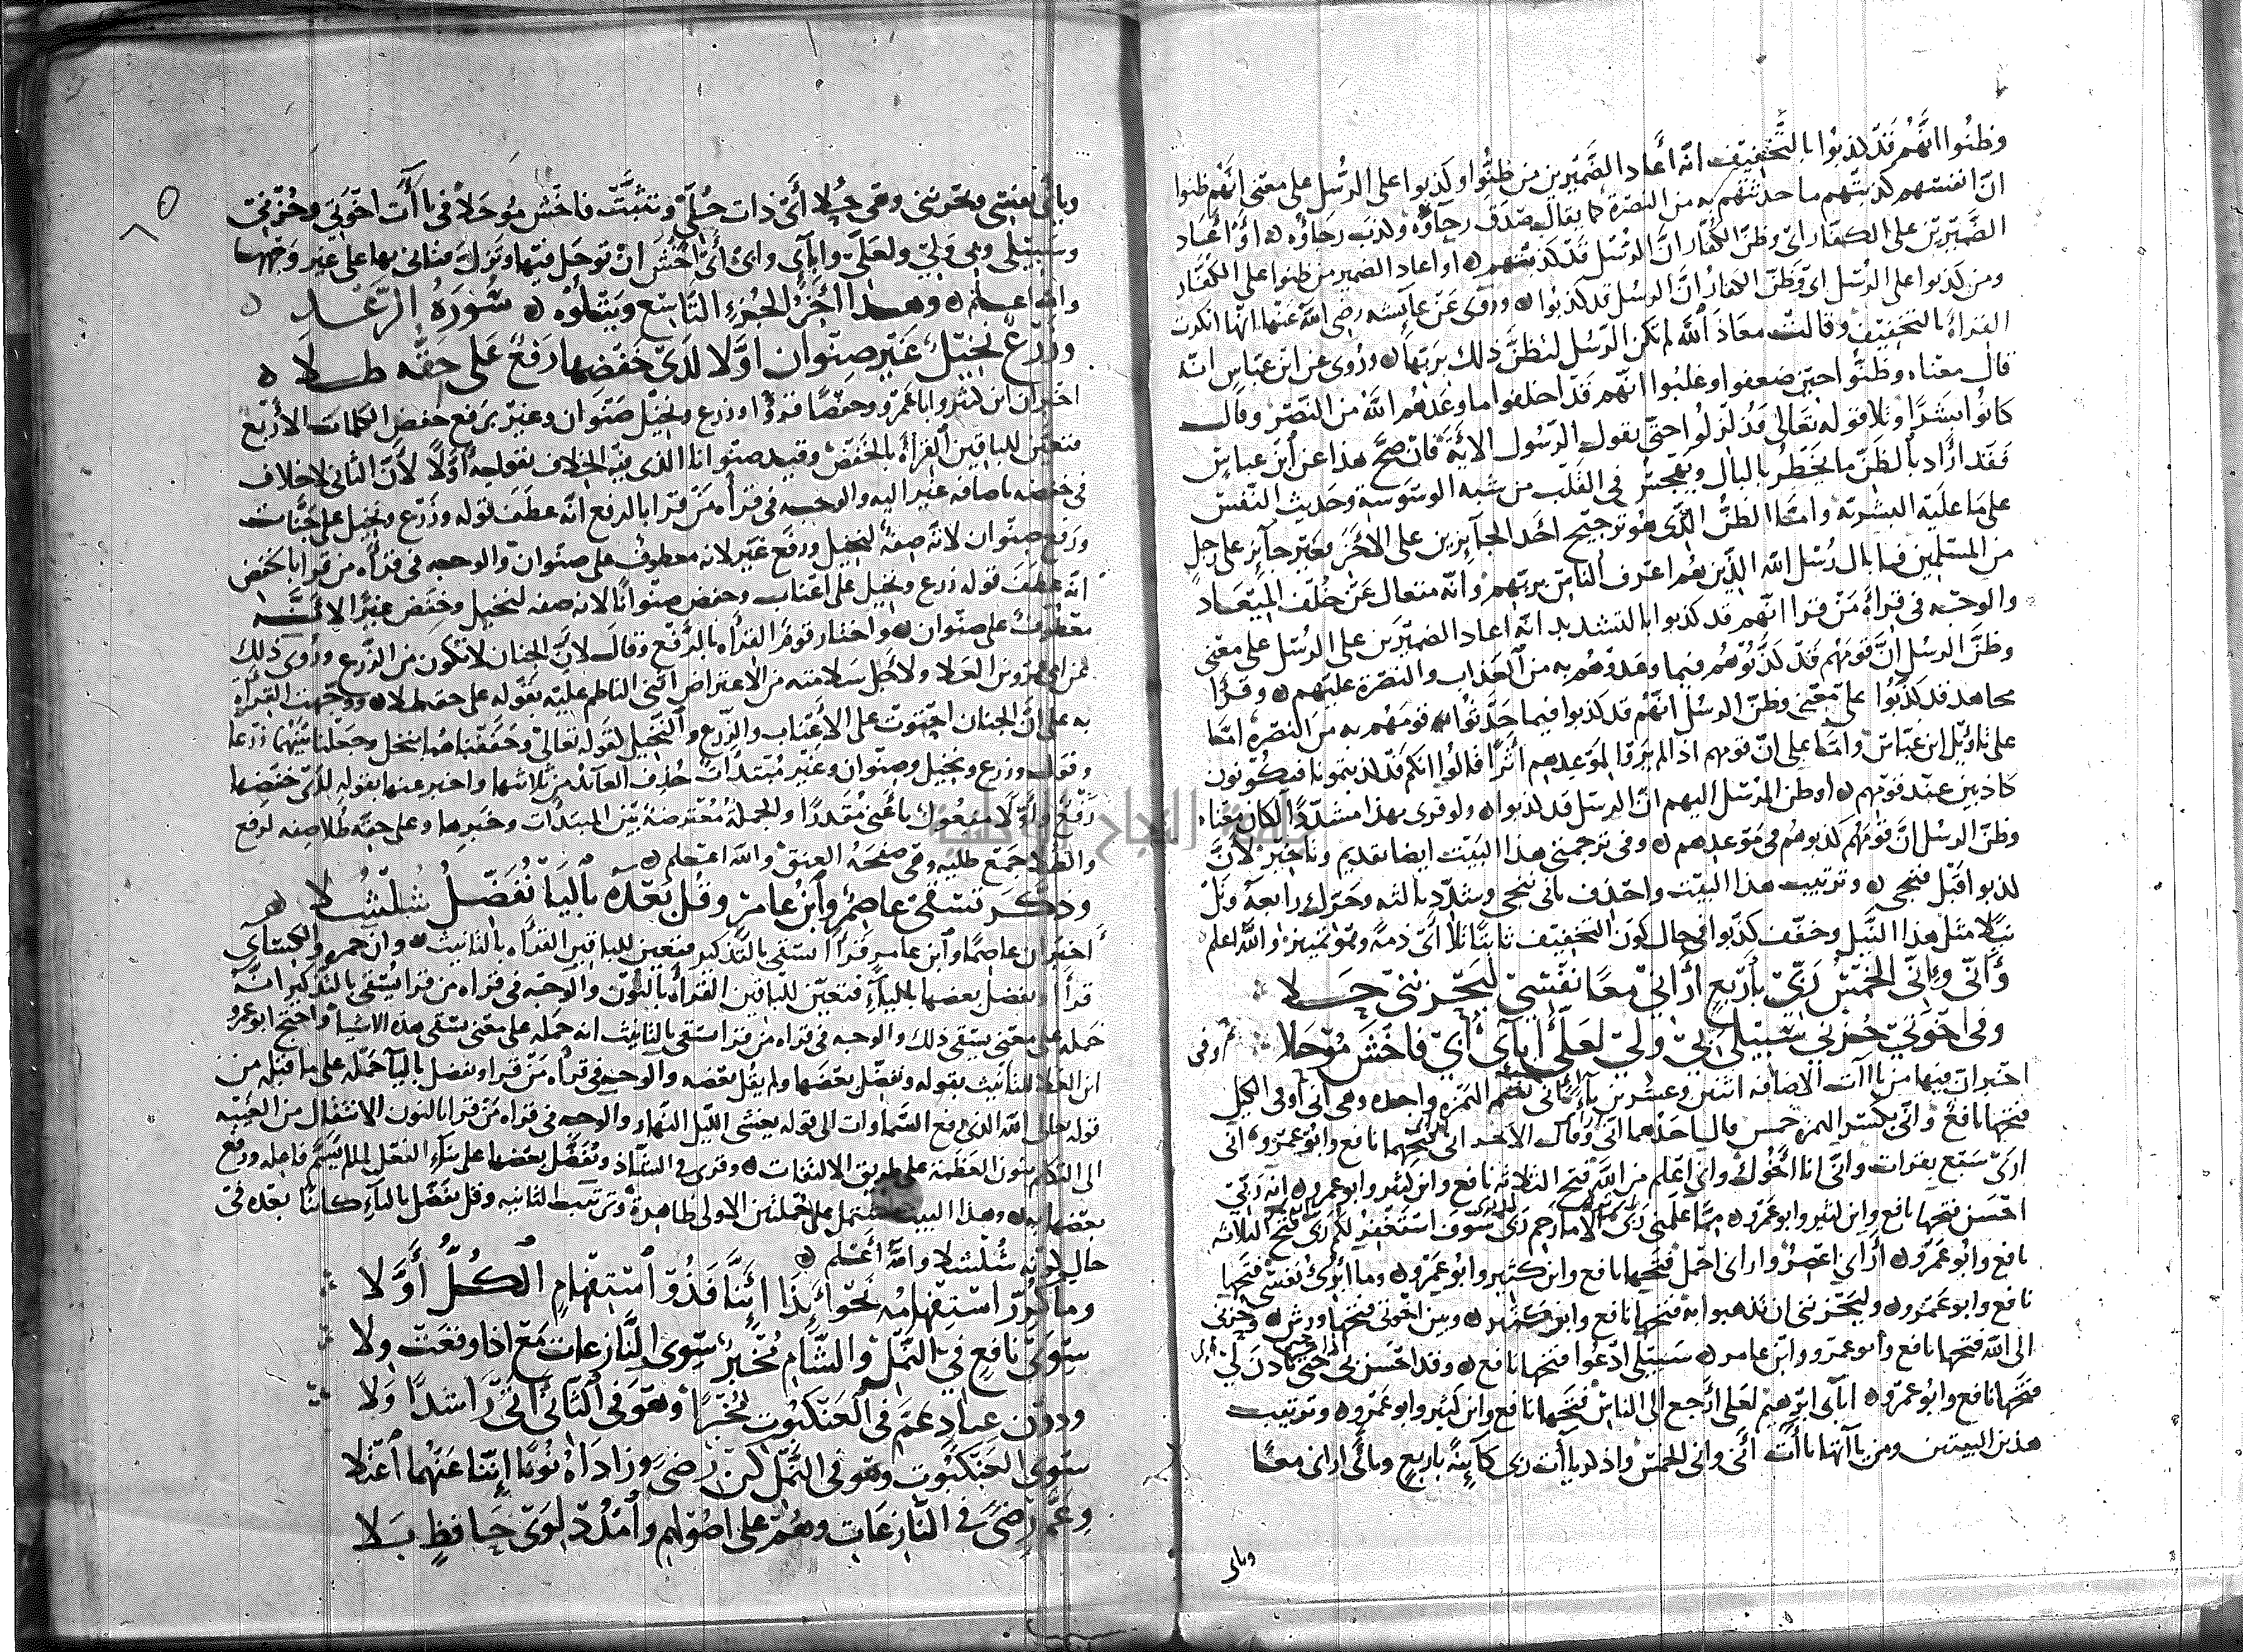 وظنوا انهم قد كذبوا بالتخفيف انه أعاد الضميرين من ظنوا وكذبوا على الرسل على معنى انهم ظنوا
ان انفسهم كذبتهم ما حدثتهم به من النصرة كما يقال صدق رجاؤه وكذب رجاؤه او أعاد
الضميرين على الكفار اي وظن الكفار ان الرسل قد كذبتهم او اعاد الضمير من ظنوا على الكفار
ومن كذبوا على الرسل اي وظن الكفار ان الرسل قد كذبوا وروى عن عائشه رضى الله عنها انها انكرت
القراة بالتخفيف وقالت معاذ الله لم تكن الرسل لتظن ذلك بربها وروى عن ابن عباس انه
قال معناه وظنوا حين ضعفوا وغلبوا انهم قد اخلفوا ما وعدهم الله من النصر وقال
كانوا بشرا وتلا قوله تعالى وزلزلوا حتى يقول الرسول الاية فان صح هذا عن ابن عباس
فقد اراد بالظن ما يخطر بالبال ويهجس في القلب من شبه الوسوسة وحديث النفس
على ما عليه البشرية وامّا الظن الذي هو ترجيح احد الجايزين على الاخر فغير جايز على رجل
من المسلمين فما بال رسل الله الذين هم اعرف الناس بربهم وانه متعال عن خلف الميعاد
والوجه في قرأة من قرا انهم قد كذبوا بالتشديد انه اعاد الضميرين على الرسل على معنى
وظن الرسل ان قومهم قد كذبوهم فيما وعدوهم به من العذاب والنصرة عليهم وقرأ
مجاهد قد كذبوا على معنى وظن الرسل انهم قد كذبوا فيما حدثوا به قومهم به من النصره امّا
على تاويل ابن عباس وامّا على ان قومهم اذا لم يروا لموعدهم أثرا قالوا انكم قد كذبتمونا فيكونون
كاذبين عند قومهم او وظن المرسل اليهم ان الرسل قد كذبوا ولو قرى بهذا مشددًا لكان معناه
وظن الرسل ان قومهم كذبوهم في موعدهم وفي ترجمتي هذا البيت ايضا تقديم وتاخير لان
كذبوا قبل فنجي وترتيب هذا البيت واحذف ثاني ننجي وشدد ثالثه وحرك رابعه ونل
نيلا مثل هذا النيل وخفف كذبوا في حال كون التخفيف ثابتا تلا أي ذمة وهو تمييز والله اعلم
وأنّي وإنّي الخمس ربّي بأربع أراني معًا نفسي ليحزنني حلا
وفي اخوتي حزني سبيلي بي ولي لعلّي ابآئي أبي فاخش موحلا
اخبر ان فيها من ياآت الاضافه اثنين وعشرين ياء أني بفتح الهمزه واحده وهي أني أوفي الكيل
فتحها نافع واني بكسر الهمزه خمس قال احدهما اني وقال الاخر اني فتحهما نافع وابو عمرو اني
ارى سبع بقرات واني انا اخوك واني اعلم من الله فتح الثلاثه نافع وابن كثير وابو عمرو انه ربي
احسن فتحها نافع وابن كثير وابو عمرو مما علمني ربي الا ما رحم ربي سوف استغفر لكم ربي فتح الثلاثه
نافع وابو عمرو أراني اعصر واراني احمل فتحها نافع وابن كثير وابو عمرو وما أبرئ نفسي فتحها
نافع وابو عمرو وليحزنني ان تذهبوا به فتحها نافع وابن كثير وبين اخوتي فتحها ورش وحزني
الى الله فتحها نافع وابو عمرو وابن عامر سبيلي ادعوا فتحها نافع وقد احسن بي حتى ياذن لي
فتحها نافع وابو عمرو ابآئي ابرهيم لعلي ارجع الى الناس فتحها نافع وابن كثير وابو عمرو وترتيب
هذين البيتين ومن ياآتها ياآت أنّي واني الخمس واذكر ياآت ربي كاينة باربع ويائي اراني معًا
ويائي
ويائي نفسي ويحزنني وهي حلا أي ذات حلي وتثبت فاخش موحلا في ياآت اخوتي وحزني
وسبيلي وبي ولي ولعلي وابآئي وابي أي اخش ان توحل فيها وتزل فتاتي بها على غير وجهها
والله اعلم وهذا اخر الجزء التاسع ويتلوه سورة الرعد
وزرع نخيل غير صنوان اولا لدى خفضها رفع على حقه طلا
اخبر ان ابن كثير وابا عمرو وحفصا قرؤا وزرع ونخيل صنوان وغير برفع خفض الكلمات الأربع
فتعين للباقين القرأة بالخفض وقيد صنوانا الذي فيه الخلاف بقوله أولا لان الثاني لا خلاف
في خفضه باضافه غير اليه والوجه في قرأة من قرا بالرفع انه عطف قوله وزرع ونخيل على جنات
ورفع صنوان لانه صفة لنخيل ورفع غير لانه معطوف على صنوان والوجه في قرأه من قرا بالخفض
انه عطف قوله زرع ونخيل على اعناب وخفض صنوانًا لانه صفه لنخيل وخفض غيرًا لانه
معطوف على صنوان واختار قوم القرأه بالرفع وقال لان الجنان لا تكون من الزرع وروى ذلك
عن ابي عمرو بن العلا ولاجل سلامته من الاعتراض اثنى الناظم عليه بقوله على حقه طلا ووجهت القرأة
به على ان الجنان احتوت على الاعناب والزرع والنخيل لقوله تعالى وحففناهما بنخل وجعلنا بينهما زرعا
وقوله وزرع ونخيل وصنوان وغير مبتدات حذف العائد من ثلاثتها واخبر عنها بقوله لدى خفضها
رفع وأولا مفعول باعني مقدرا والجملة معترضة بين المبتدأت وخبرها وعلى حقه طلا صفه لرفع
والطلا جمع طلية وهي صفحة العنق والله اعلم
وذكر تسقى عاصم وابن عامر وقل بعده باليا نفضل شلشلا
اخبر ان عاصمًا وابن عامر قرأا يسقى بالتذكير فتعين للباقين القرأه بالتانيث وان حمزه والكسآي
قرأا ويفضل بعضها بالياء فتعين للباقين القرأة بالنون والوجه في قراه من قرا يسقى بالتذكير انه
حمله على معنى يسقى ذلك والوجه في قراه من قرا تسقى بالتانيث انه حمله على معنى تسقى هذه الاشيا واحتج ابو عمرو
ابن العلا للتانيث بقوله ونفضل بعضها ولم يقل بعضه والوجه في قرأه من قرا ويفضل باليآ حمله على ما قبله من
قوله تعالى الله الذي رفع السماوات الى قوله يغشى الليل النهار والوجه في قراه من قرا بالنون الانتقال من الغيبه
الى التكلم بنون العظمة على طريق الالتفات وقرى في الشاذ وتفضل بعضها على بناء الفعل لما لم يسم فاعله ورفع
بعضها به وهذا البيت مشتمل على جملتين الاولى ظاهرة وترتيب الثانيه وقل نفضل بالياء كائنًا بعده في
حال كونه شلشلا والله أعلم
وما كرر استفهامه نحو أئذا أئنا فذو استفهام الكل أولا
سوى نافع في النمل والشام مخبر سوى النازعات مع اذا وقعت ولا
ودون عناد عم في العنكبوت مخبرًا وهو في الثاني اتى راشدا ولا
سوى العنكبوت وهو في النمل كن رضى وزاداه نونًا إننا عنهما اعتلا
وعم رضى في النازعات وهم على اصولهم وامدد لوى حافظ بلا